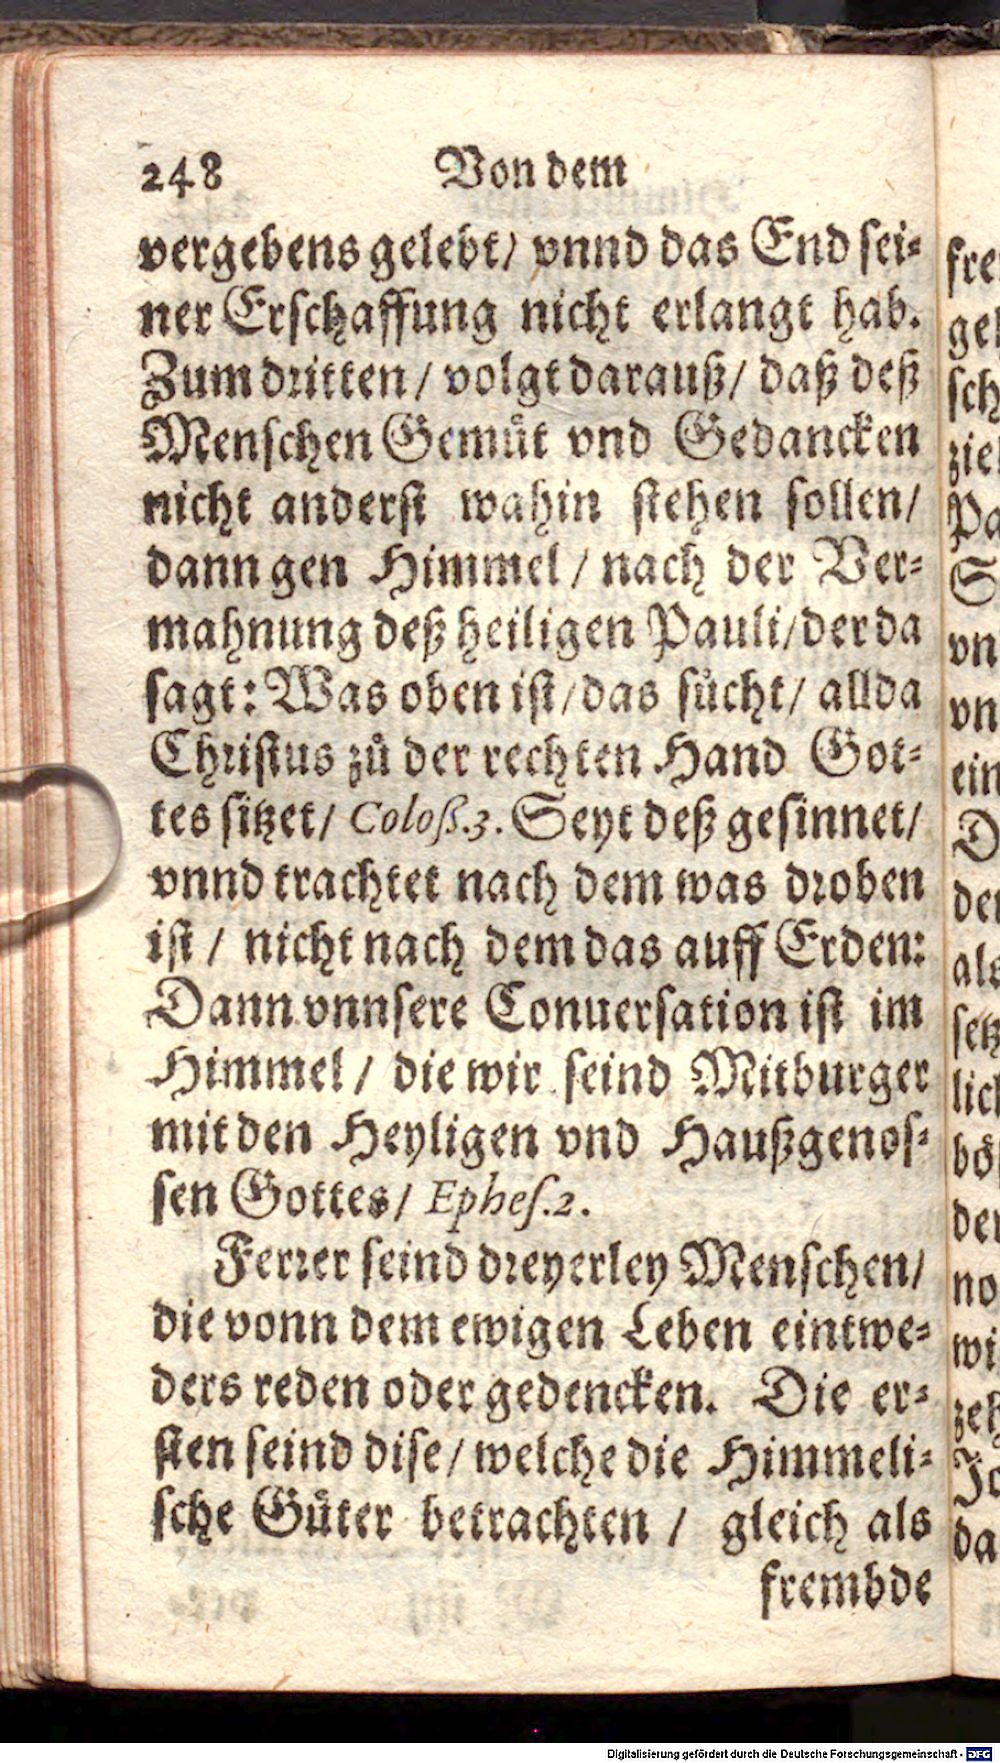 248 Von dem
vergebens gelebt/ vnnd das End sei-
ner Erschaffung nicht erlangt hab.
Zum dritten/ volgt darauß/ daß deß
Menschen Gemüt vnd Gedancken
nicht anderst wahin stehen sollen/
dann gen Himmel/ nach der Ver-
mahnung deß heiligen Pauli/ der da
sagt: Was oben ist/ das sücht/ allda
Christus zů der rechten Hand Got-
tes sitzet/ Coloß.3. Seyt deß gesinnet/
vnnd trachtet nach dem was droben
ist/ nicht nach dem das auff Erden:
Dann vnnsere Conuersation ist im
Himmel/ die wir seind Mitburger
mit den Heyligen vnd Haußgenos-
sen Gottes/ Ephes.2.
Ferrer seind dreyerley Menschen/
die vonn dem ewigen Leben eintwe-
ders reden oder gedencken. Die er-
sten seind dise/ welche die Himmeli-
sche Güter betrachten/ gleich als
frembde
fre
gei
sch
ziel
Pa
S
vn
vn
ein
D
der
als
setz
lich
bö
der
no
wi
zeh
da
Digitalisierung gefördert durch die Deutsche Forschungsgemeinschaft - DFG